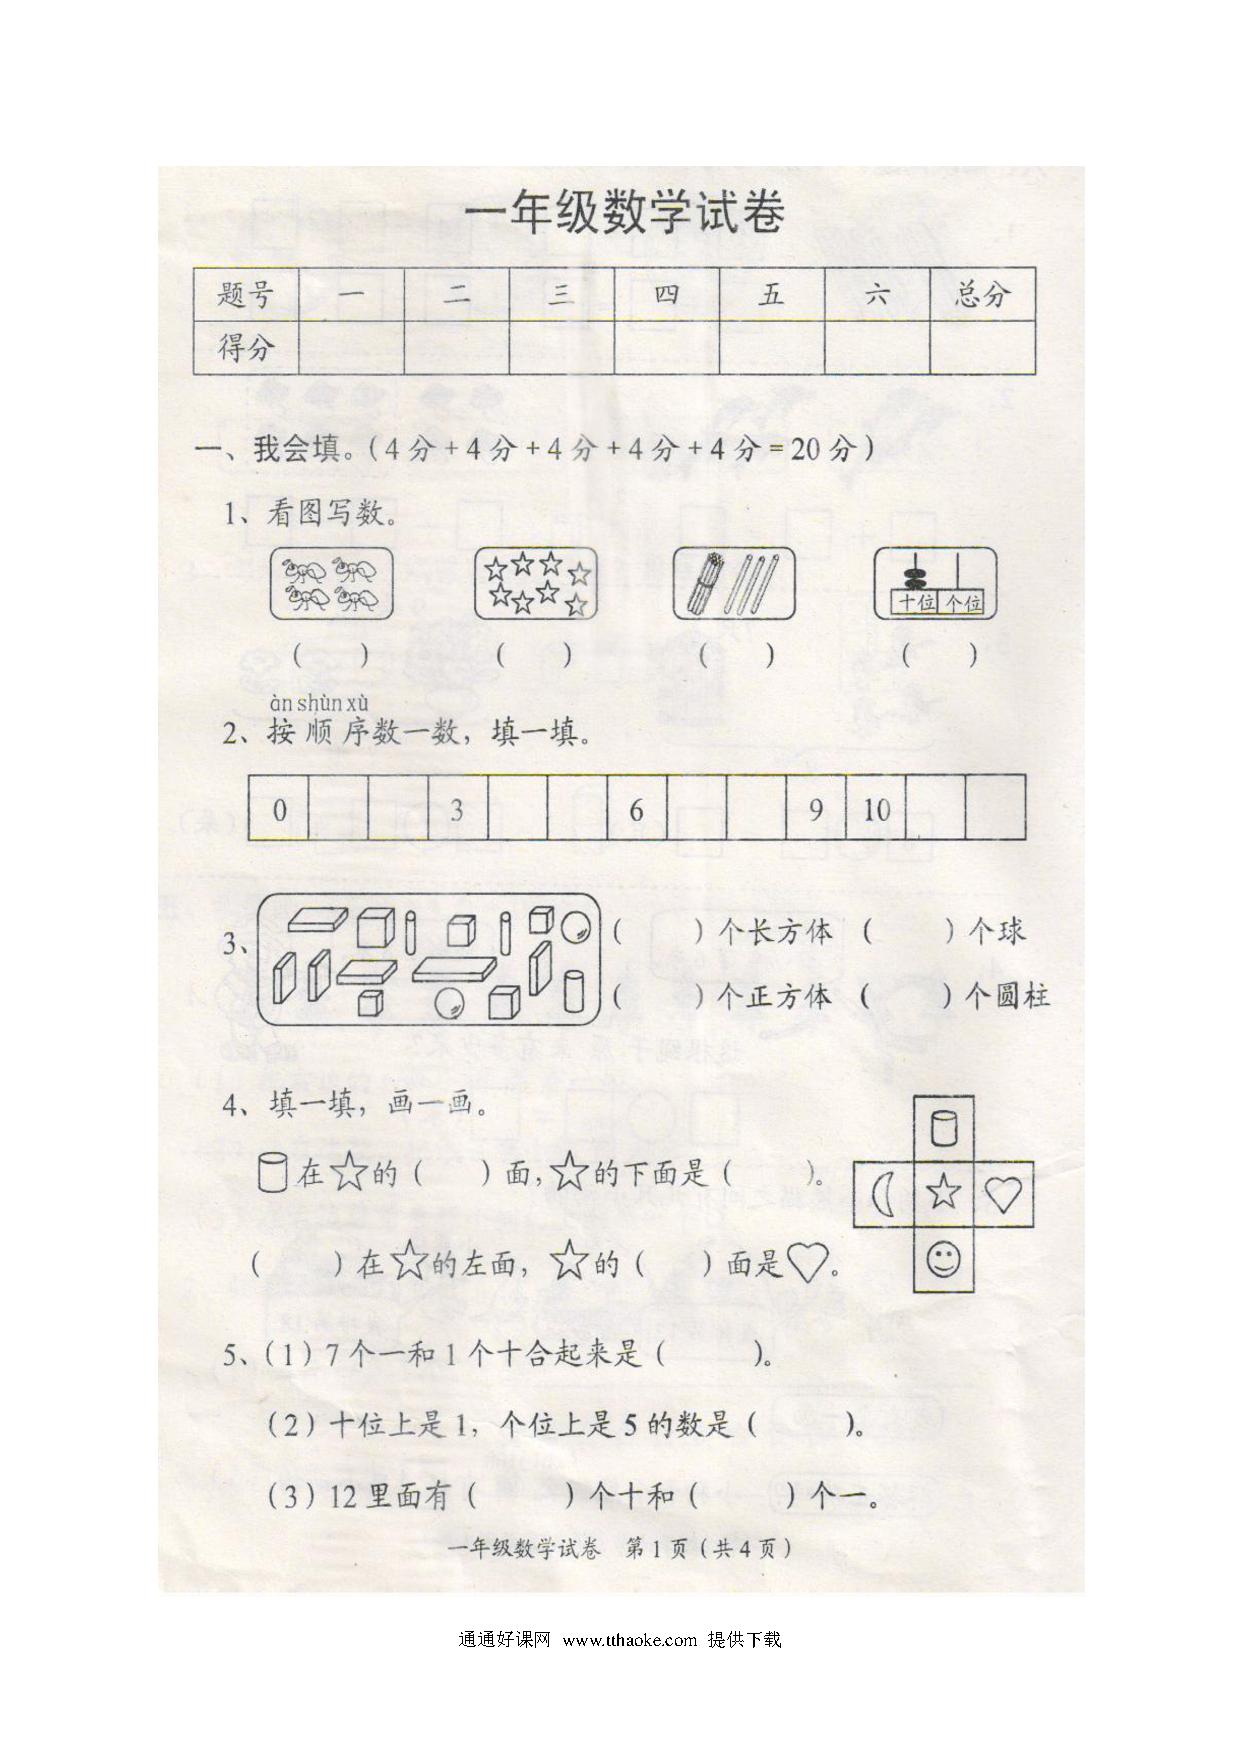 一年级数学试卷
题号 一 二 三 四 五 六 总分
得分
一、我会填。(4分+4分+4分+4分+4分=20分)
1、看图写数。
十位 个位
( ) ( ) ( ) ( )
àn shùn xù
2、按顺序数一数，填一填。
0 3 6 9 10
3、 ( )个长方体 ( )个球
( )个正方体 ( )个圆柱
4、填一填，画一画。
在☆的( )面，☆的下面是( )。
( )在☆的左面，☆的( )面是♡。
5、(1)7个一和1个十合起来是( )。
(2)十位上是1，个位上是5的数是( )。
(3)12里面有( )个十和( )个一。
一年级数学试卷 第1页(共4页)
通通好课网 www.tthaoke.com 提供下载